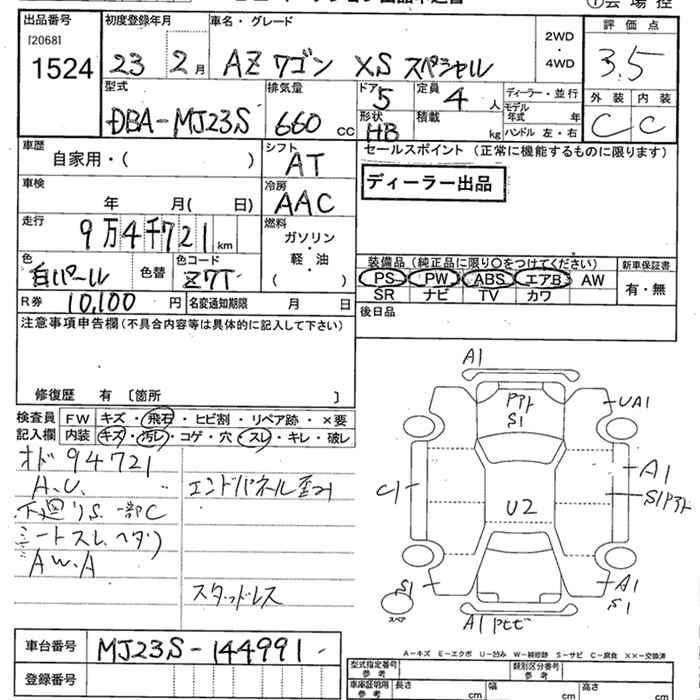 出品番号 初度登録年月 車名・グレード 評価点
[2068]
1524 23 2月 AZワゴン XSスペシャル 2WD・4WD 3.5
型式 排気量 ドア 定員 ディーラー・並行 外装 内装
DBA-MJ23S 660cc 5 4人 モデル年式 年 C C
形状 積載 ハンドル 左・右
HB kg
車歴 シフト セールスポイント(正常に機能するものに限ります)
自家用・( ) AT
車検 冷房 ディーラー出品
年 月( 日) AAC
走行 燃料
9万4千721km ガソリン・軽油
( )
色 色替 色コード 装備品(純正品に限り〇をつけてください) 新車保証書
白パール Z7T PS PW ABS エアB AW 有・無
R券 10,100円 名変通知期限 月 日 SR ナビ TV カワ
注意事項申告欄(不具合内容等は具体的に記入して下さい) 後日品
修復歴 有 〔箇所 〕
検査員 FW キズ・飛石・ヒビ割・リペア跡・×要
記入欄 内装 キズ・汚レ・コゲ・穴・スレ・キレ・破レ
オド94721
A.U. エンドパネル歪み
下廻りS.一部C
シートスレ、ヘタリ
AW.A
スタッドレス
A1
UA1
S1
C1
A1
S1
U2
S1
A1
S1
スペア
A1
A-キズ E-エクボ U-凹み W-補修跡 S-サビ C-腐食 XX-交換済
車台番号 MJ23S-144991
登録番号
型式指定番号 参考 類別区分番号 参考
車庫証明用 参考 長さ cm 幅 cm 高さ cm